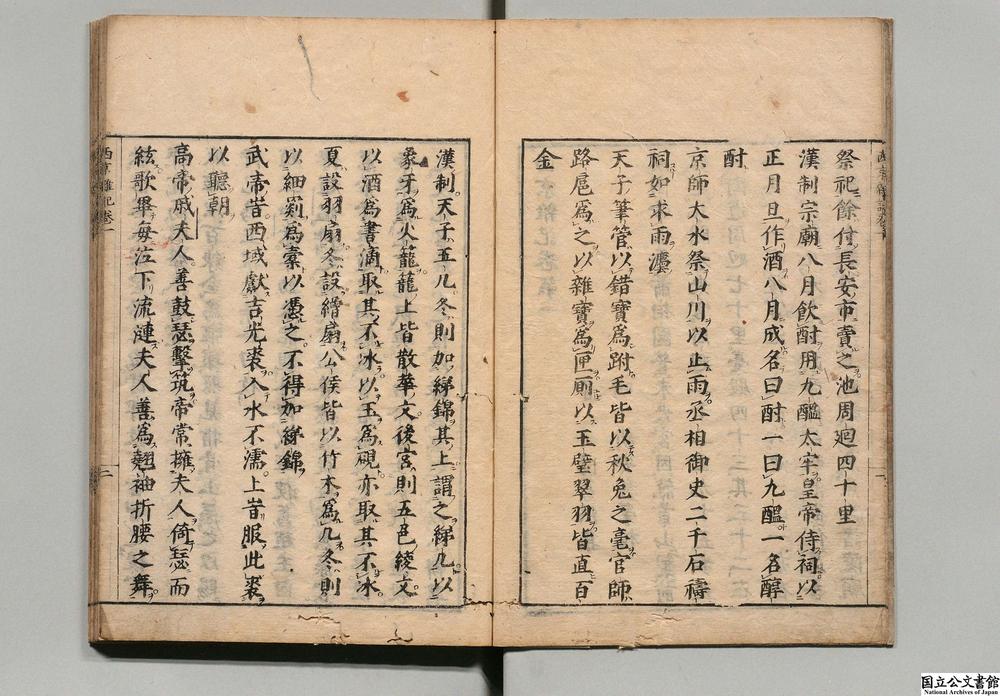 祭祀餘付長安市賣之池周廻四十里
漢制宗廟八月飲酎用九醞太牢皇帝侍祠以
正月旦作酒八月成名曰酎一曰九醞一名醇
酎
京師大水祭山川以止雨丞相御史二千石禱
祠如求雨灋
天子筆管以錯寶爲跗毛皆以秋兔之毫官師
路扈爲之以雜寶爲匣厠以玉璧翠羽皆直百
金
漢制天子玉几冬則加綈錦其上謂之綈几以
象牙爲火籠籠上皆散華文後宮則五色綾文
以酒爲書滴取其不冰以玉爲硯亦取其不冰
夏設羽扇冬設繒扇公侯皆以竹木爲几冬則
以細罽爲橐以憑之不得加綈錦
武帝時西域獻吉光裘入水不濡上時服此裘
以聽朝
高帝戚夫人善鼓瑟擊筑帝常擁夫人倚瑟而
絃歌畢每泣下流漣夫人善爲翹袖折腰之舞
西京雜記卷一
二
国立公文書館
National Archives of Japan